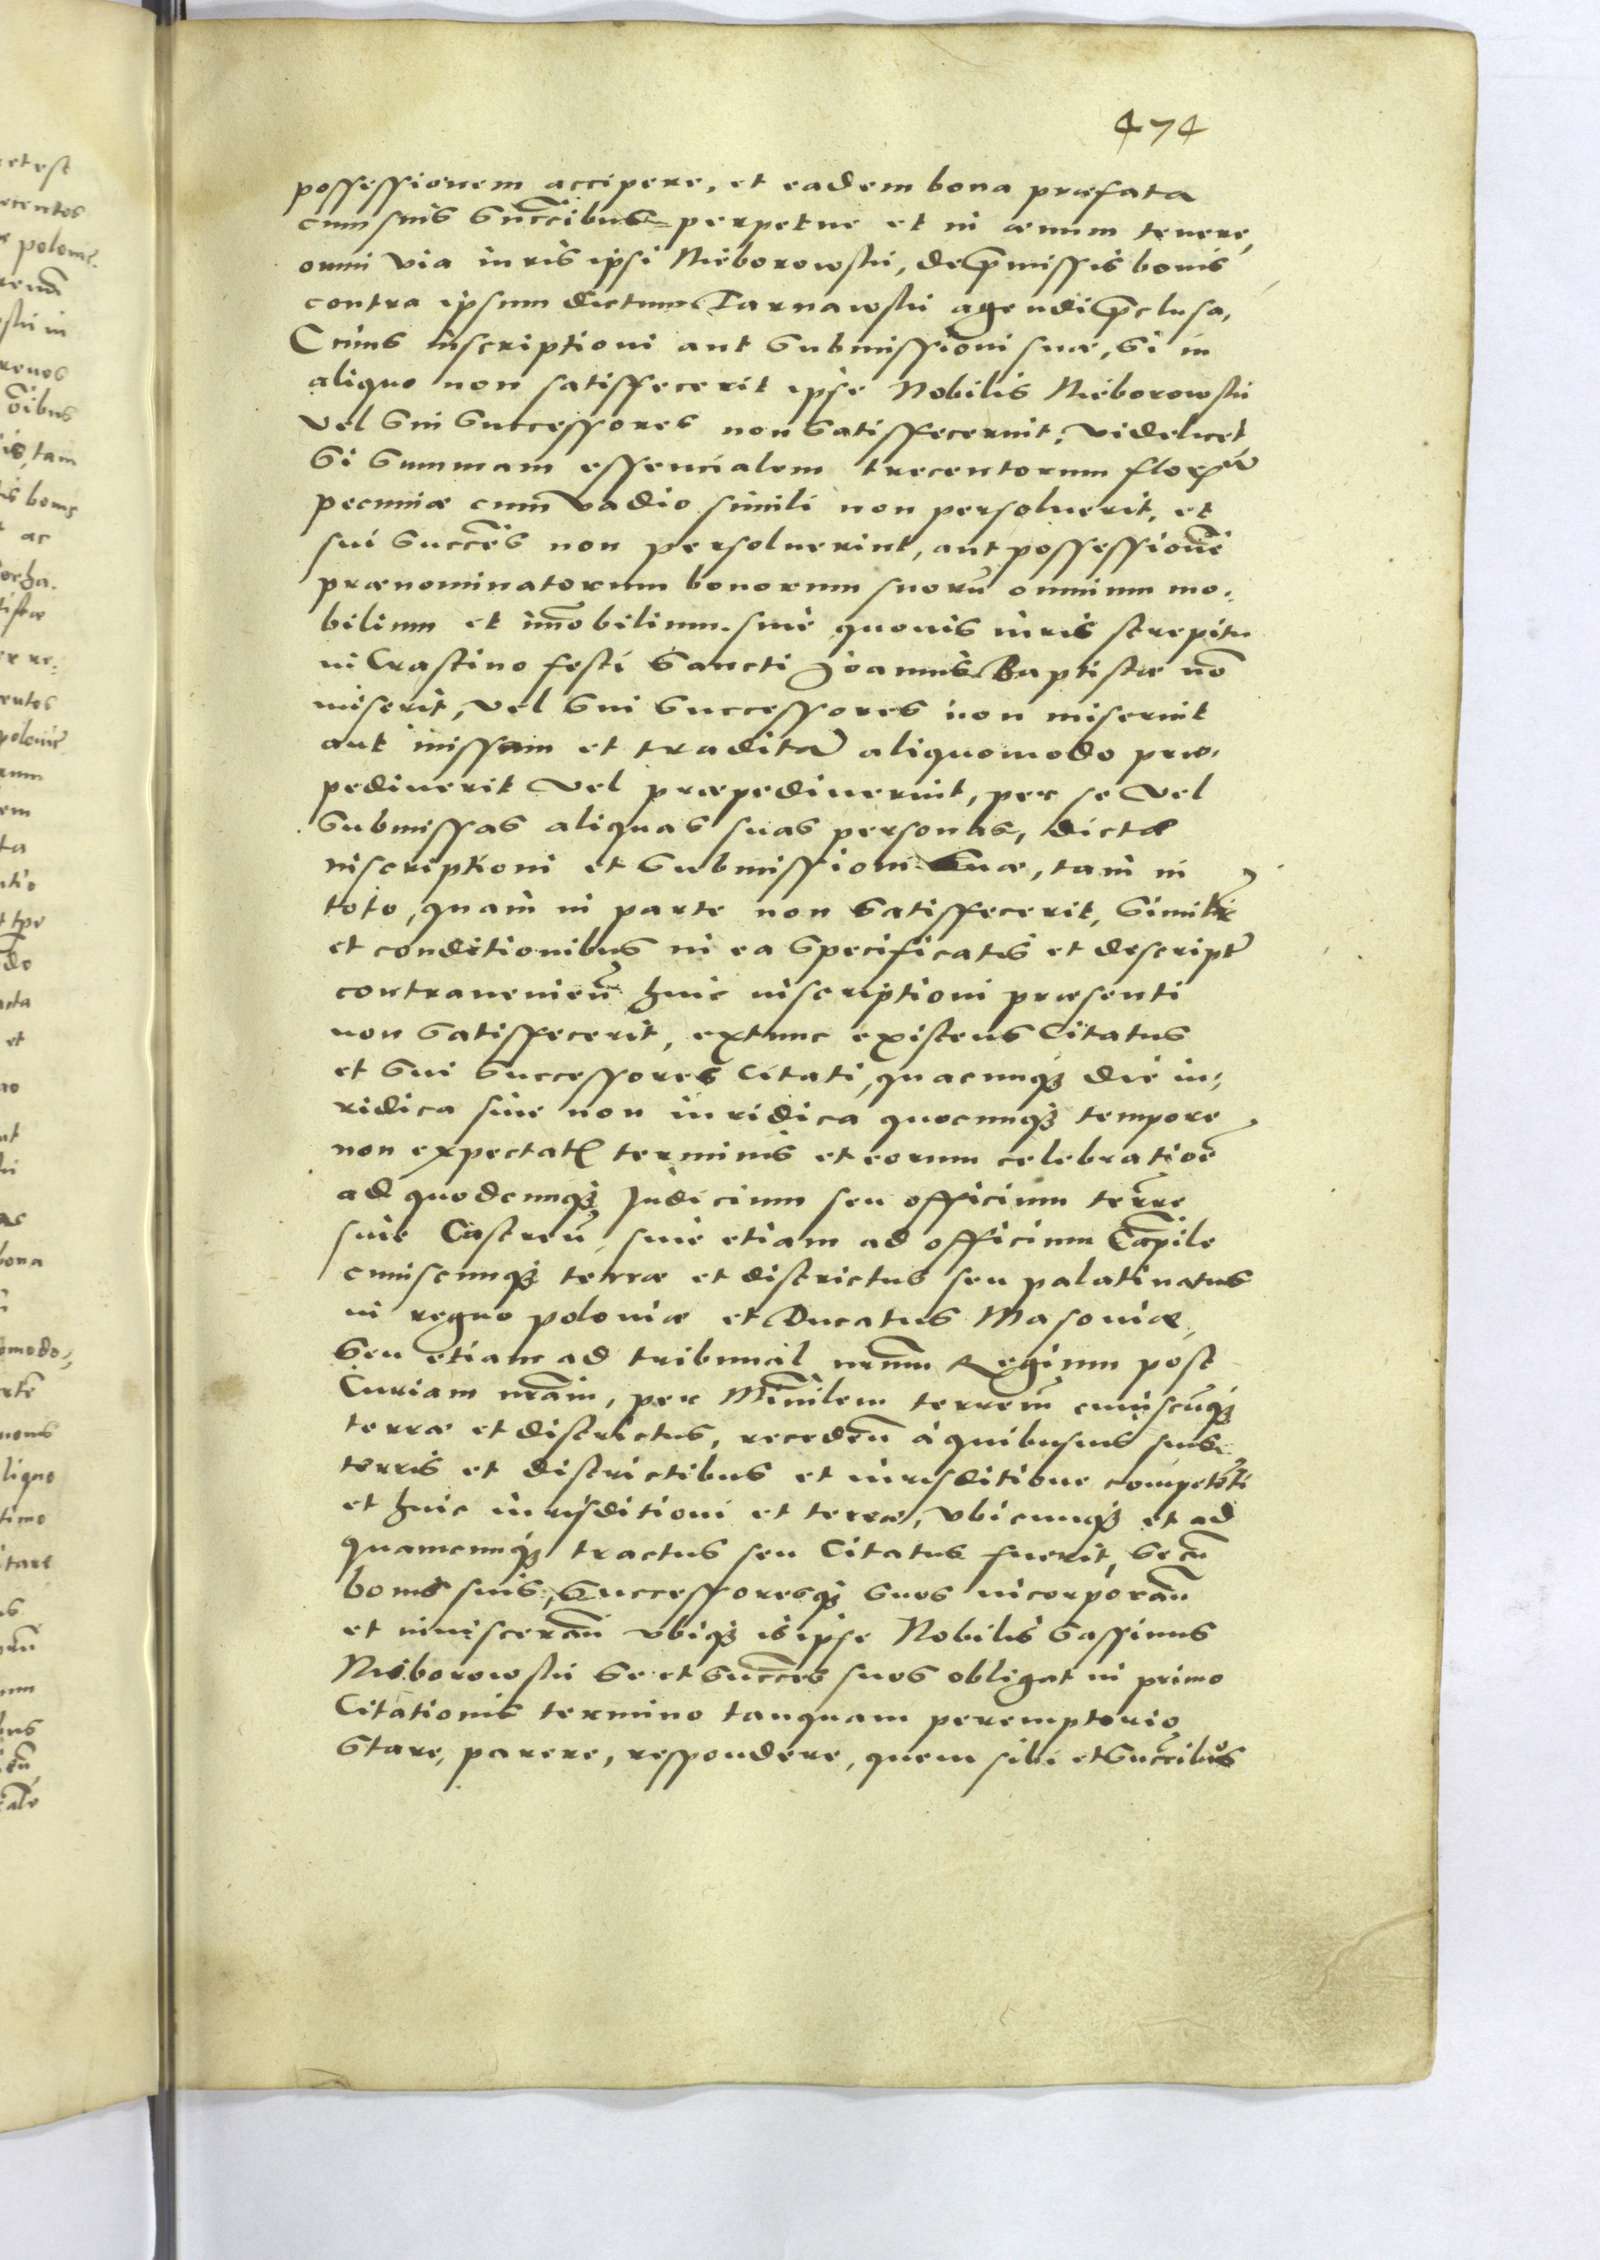 474
possessionem accipere, et eadem bona præfata
cum suis succ̃ribus perpetue et in æuum tenere,
omni via iuris ipsi Nieborowski, de p̃missis bonis
contra ipsum dictum Tarnawski agendi p̃clusa,
Cuius inscriptioni aut submissioni suæ, si in
aliquo non satisfecerit ipse Nobilis Nieborowski
vel sui successores non satisfecerint, videlicet
si summam essencialem trecentorum florenõ
pecuniæ cum vadio simili non persoluerit, et
sui succẽs non persoluerint, aut possessionẽ
prænominatorum bonorum suorũ omnium mo-
bilium et im̃obilium siue quouis iuris strepitu
in Crastino festi Sancti Joannis Baptistæ nõ
miserit, vel sui successores non miserint
aut missam et traditã aliquomodo præ-
pediuerit vel præpediuerint, per se vel
submissas aliquas suas personas, dictæ
inscriptioni et submissioni suæ, tam in
toto, quam in parte non satisfecerit, similr̃
et conditionibus in ea specificatis et descript̃
contrauenieñ huic inscriptioni præsenti
non satisfecerit, extunc existens Citatus
et sui successores Citati, quacunq3 die iu-
ridica siue non iuridica quocunq3 tempore
non expectat̃ terminis et eorum celebratioẽ
ad quodcunq3 Judicium seu officium terr̃re
siue Castreñ, siue etiam ad officium Cap̃ile
cuiuscunq3 terræ et districtus seu palatinatus
in regno poloniæ et Ducatus Masouiæ,
seu etiam ad tribunal nrũm Regium post
Curiam nrãm, per Ministr̃ilem terrestr̃m cuiuscũq3
terræ et districtus, recedeñ à quibusuis suis
terris et districtibus et iurisditione competẽti
et huic iurisditioni et terræ, vbicunq3 et ad
quamcunq3 tractus seu Citatus fuerit, se cũ
bonis suis, successoresq3 suos incorporañ
et inuisceráñ vbiq3 is ipse Nobilis Gassinus
Nieborowski se et succẽs suos obligat in primo
Citationis termino tanquam peremptorio
stare, parere, respondere, quem sibi et succ̃ribus